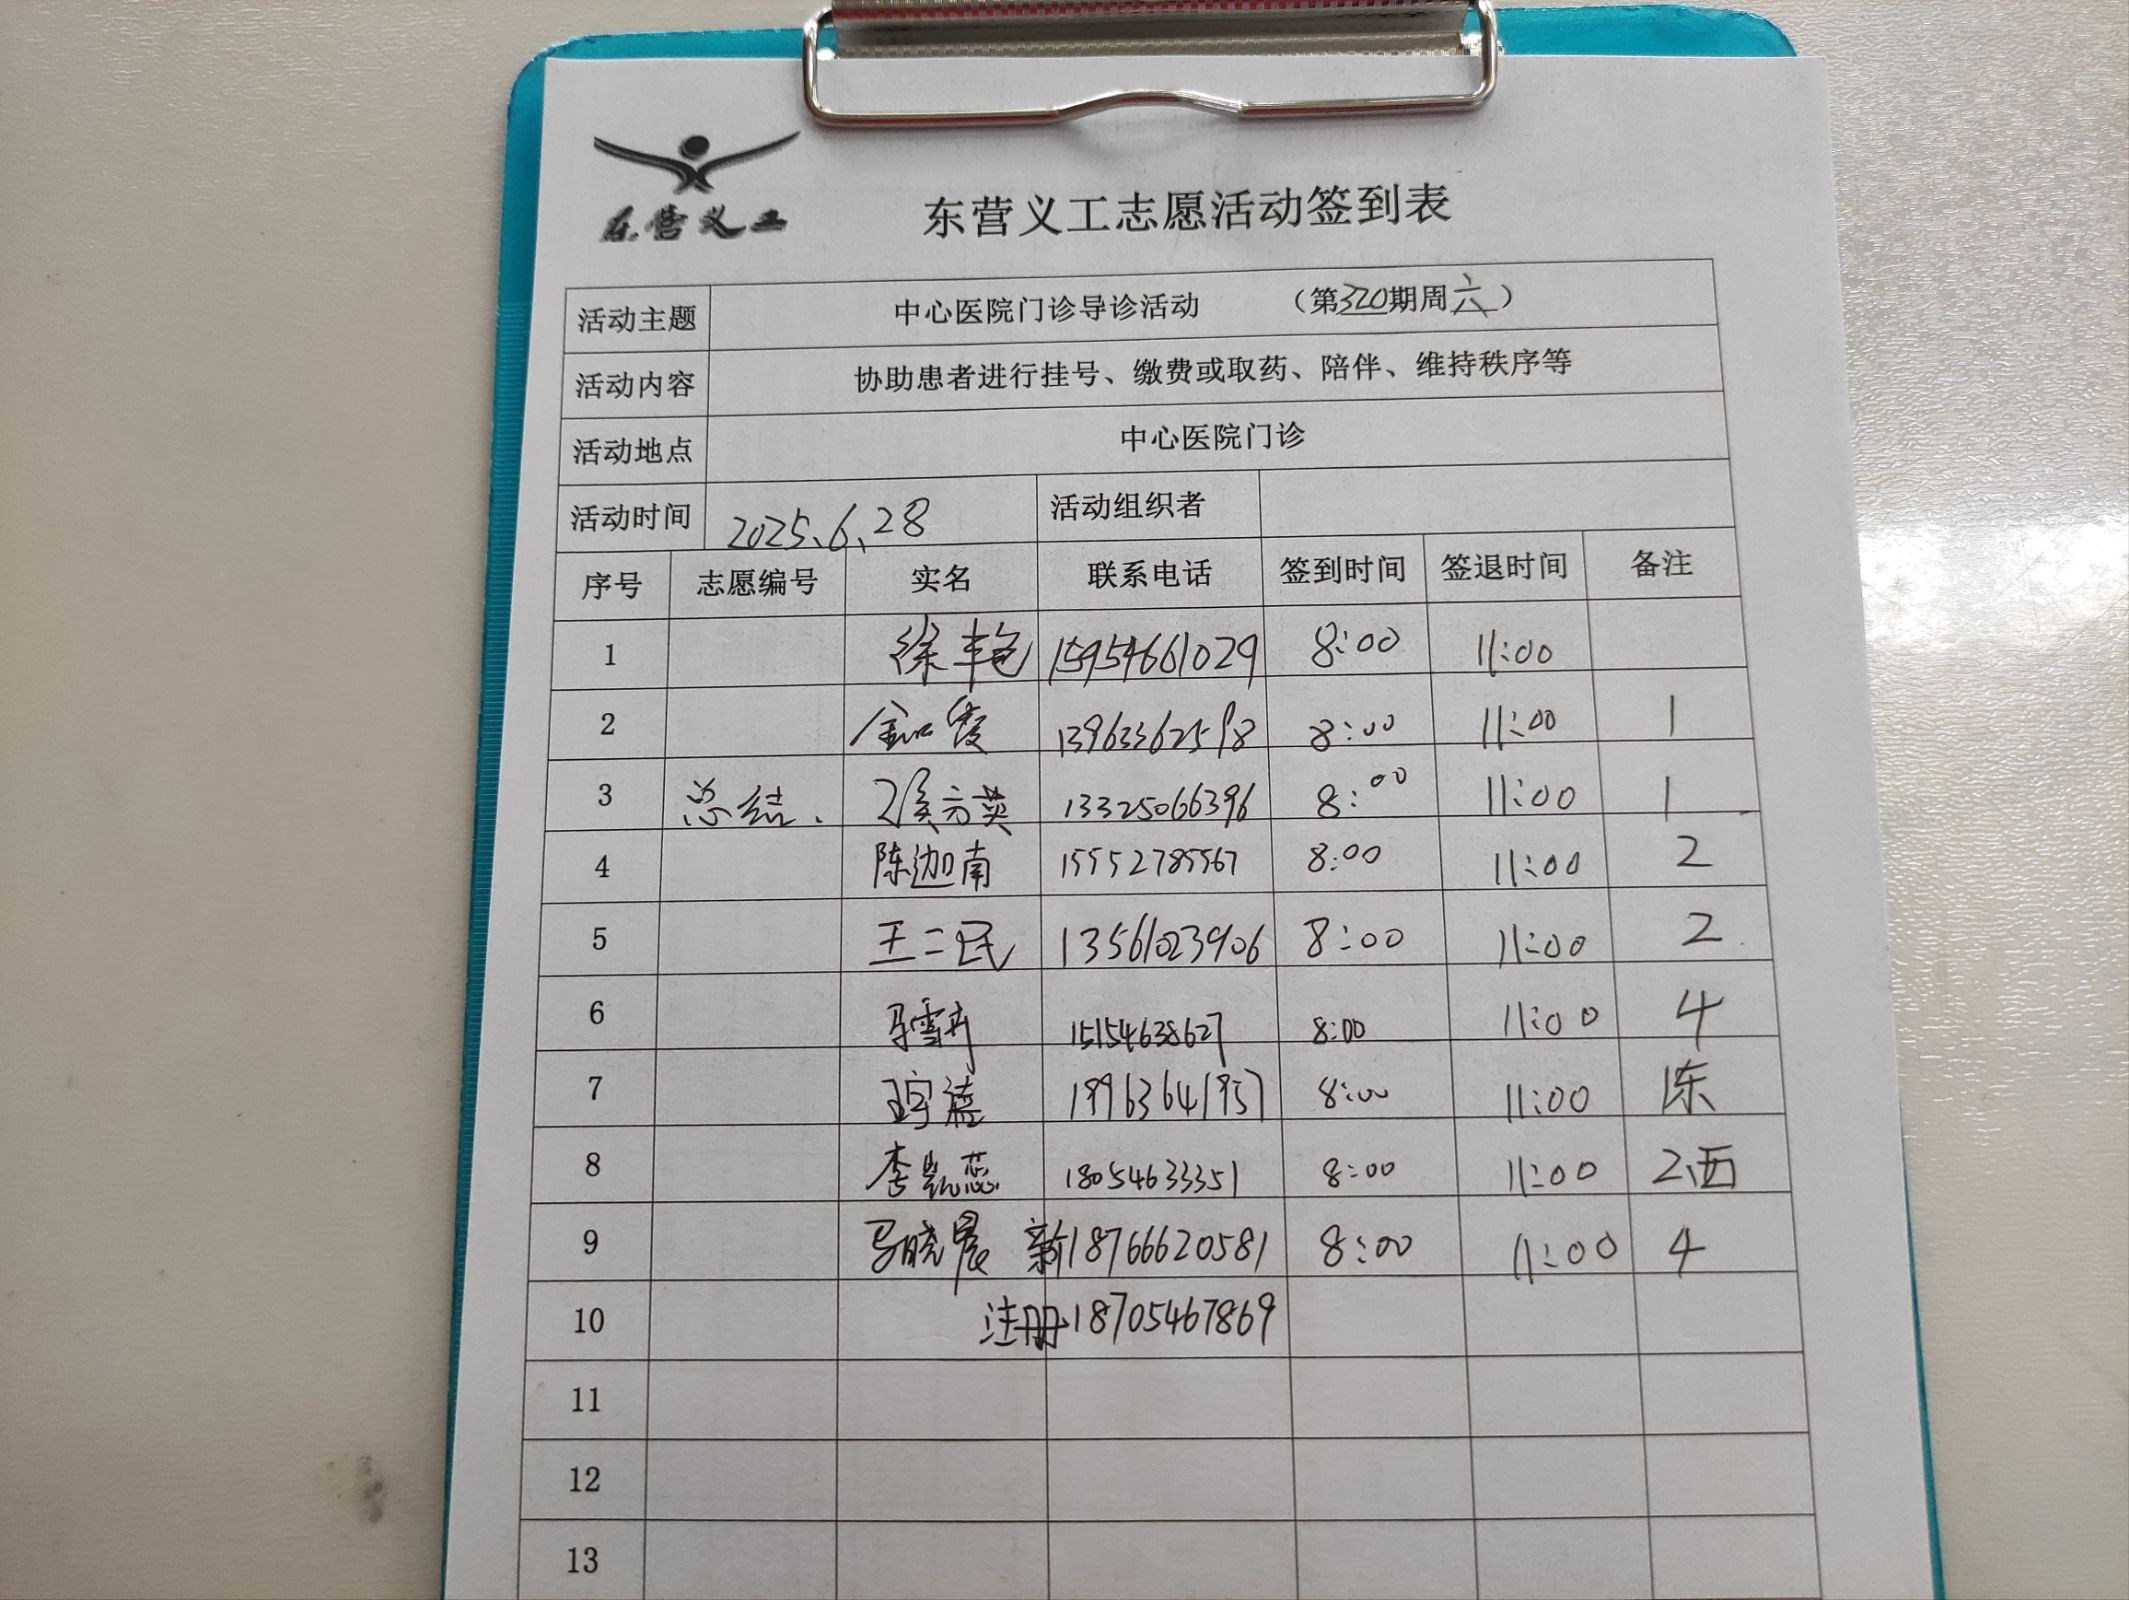 东营义工
东营义工志愿活动签到表
活动主题 中心医院门诊导诊活动 （第320期周六）
活动内容 协助患者进行挂号、缴费或取药、陪伴、维持秩序等
活动地点 中心医院门诊
活动时间 2025、6、28 活动组织者
序号 志愿编号 实名 联系电话 签到时间 签退时间 备注
1 徐丰艳 15954661029 8:00 11:00
2 13963362598 8:00 11:00 1
3 总结、 侯方英 13325066396 8:00 11:00 1
4 陈迦南 15552785567 8:00 11:00 2
5 王二民 13561023906 8:00 11:00 2
6 马雪丹 15154638627 8:00 11:00 4
7 8:00 11:00 1东
8 李凯蕊 18054633351 8:00 11:00 2西
9 马晓晨 新 18766620581 8:00 11:00 4
10 注册 18705467869
11
12
13